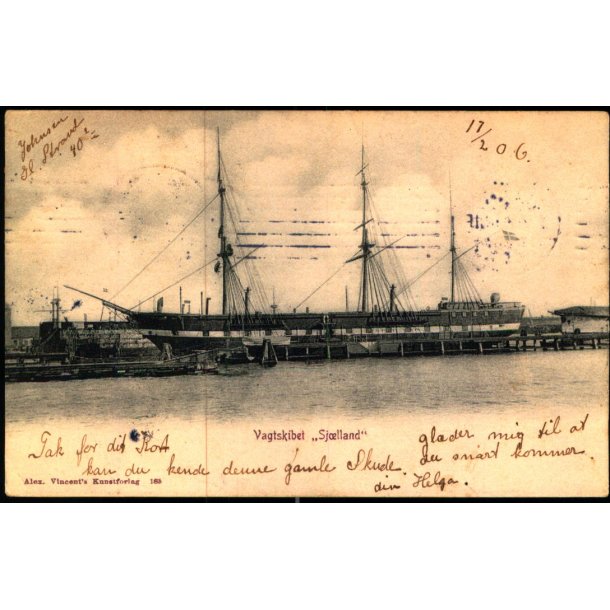 Johnsen
Gl Strand
40²
17/2 06.
Vagtskibet „Sjælland"
Tak for dit Kort
kan du kende denne gamle Skude.
glæder mig til at
du snart kommer.
din Helga.
Alex. Vincent's Kunstforlag 185